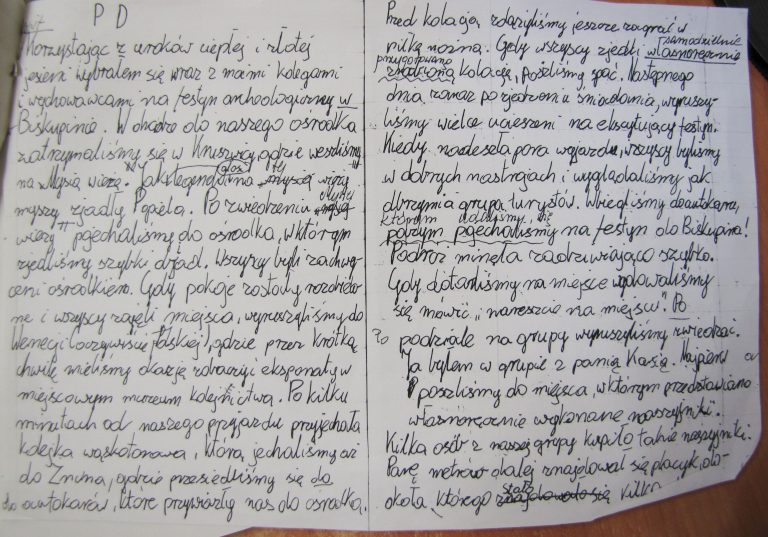 P D
Korzystając z uroków ciepłej i złotej
jesieni wybrałem się wraz z moimi kolegami
i wychowawcami na festyn archeologiczny w
Biskupinie. W drodze do naszego ośrodka
zatrzymaliśmy się w Kruszwicy, gdzie weszliśmy
na „Mysią wieżę". Jak głosi legenda tu na wieży
myszy zjadły Popiela. Po zwiedzeniu „Mysiej
wieży" pojechaliśmy do ośrodka, w którym
zjedliśmy szybki obiad. Wszyscy byli zachwy-
ceni ośrodkiem. Gdy pokoje zostały rozdzielo-
ne i wszyscy zajęli miejsca, wyruszyliśmy do
Wenecji (oczywiście Polskiej), gdzie przez krótką
chwilę mieliśmy okazję zobaczyć eksponaty w
miejscowym muzeum kolejnictwa. Po kilku
minutach od naszego przyjazdu przyjechała
kolejka wąskotorowa, którą jechaliśmy aż
do Żnina, gdzie przesiedliśmy się do
do autokarów, które przywiozły nas do ośrodka.
Przed kolacją zdążyliśmy jeszcze zagrać w
piłkę nożną. Gdy wszyscy zjedli własnoręcznie samodzielnie
przygotowaną zrobioną kolację, poszliśmy spać. Następnego
dnia zaraz po zjedzeniu śniadania, wyruszy-
liśmy wielce ucieszeni na ekscytujący festyn.
Kiedy nadeszła pora wyjazdu, wszyscy byliśmy
w dobrych nastrojach i wyglądaliśmy jak
olbrzymia grupa turystów. Wbiegliśmy do autokaru,
którym udaliśmy się
potrzym pojechaliśmy na festyn do Biskupina!
Podróż minęła zadziwiająco szybko.
Gdy dotarliśmy na miejsce wydawaliśmy
się mówić „nareszcie na miejscu". Po
Po podziale na grupy wyruszyliśmy zwiedzać.
Ja byłem w grupie z panią Kasią. Najpierw
poszliśmy do miejsca, w którym przedstawiano
własnoręcznie wykonane naszyjniki.
Kilka osób z naszej grupy kupiło takie naszyjniki.
Parę metrów dalej znajdował się placyk, do-
okoła, którego stało znajdowało się kilka